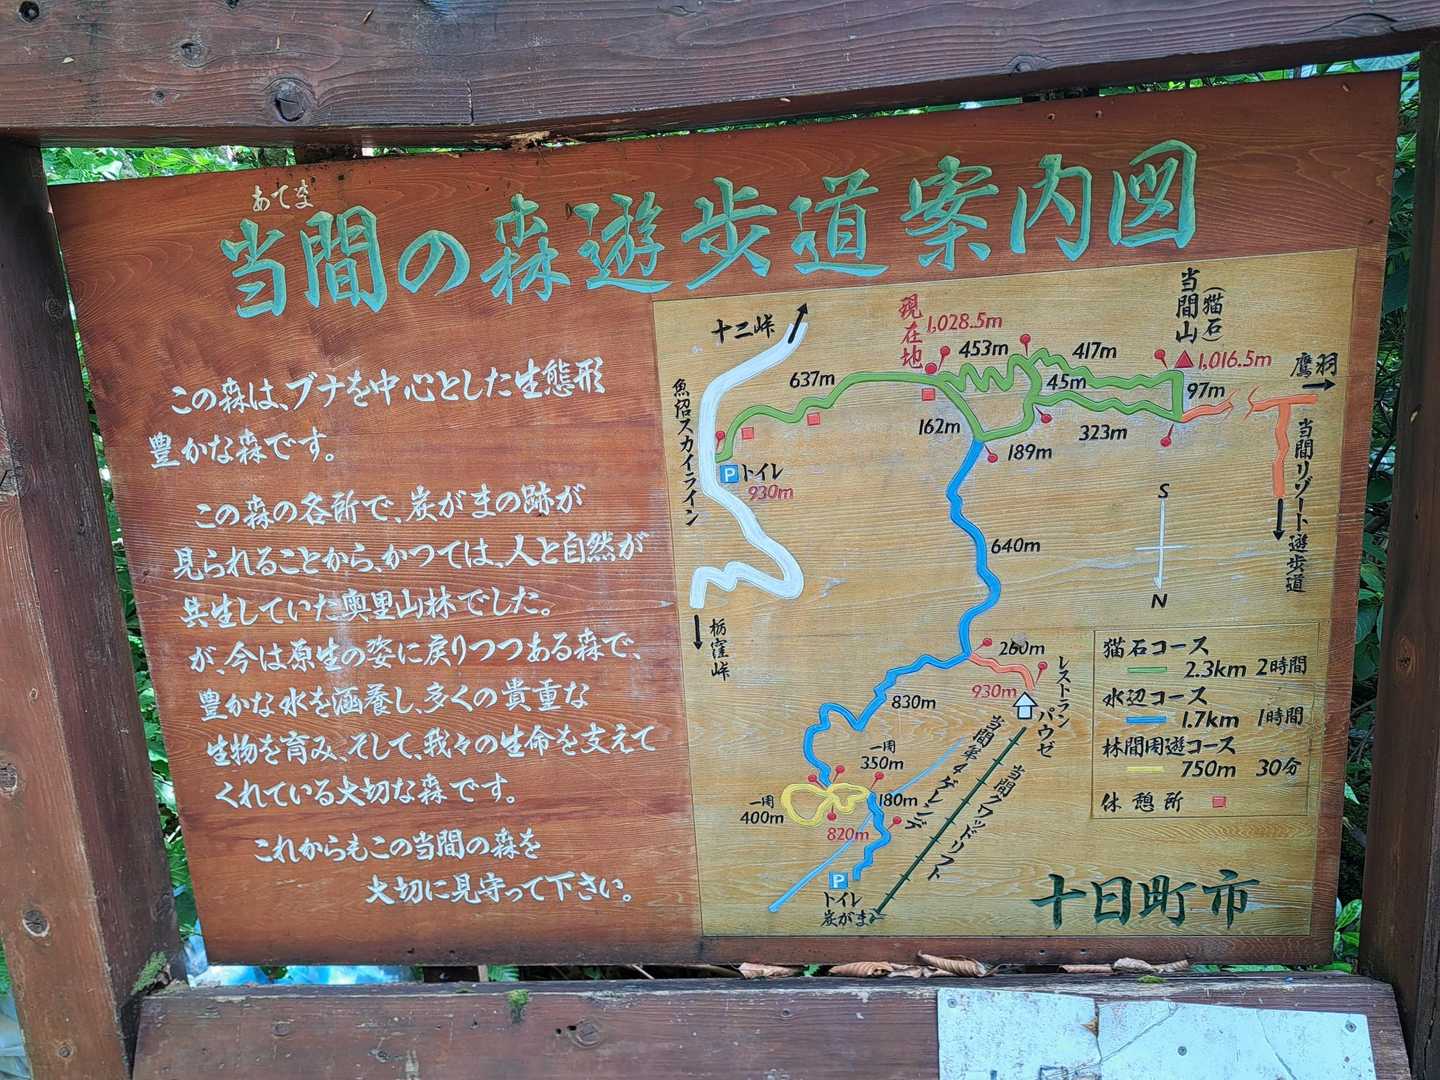 あてま
当間の森遊歩道案内図
この森は、ブナを中心とした生態形
豊かな森です。
この森の各所で、炭がまの跡が
見られることから、かつては、人と自然が
共生していた奥里山林でした。
が、今は原生の姿に戻りつつある森で、
豊かな水を涵養し、多くの貴重な
生物を育み、そして、我々の生命を支えて
くれている大切な森です。
これからもこの当間の森を
大切に見守って下さい。
十二峠
魚沼スカイライン
栃窪峠
P トイレ
930m
637m
現在地
1,028.5m
453m
417m
45m
当間山
(猫石)
1,016.5m
97m
鷹羽
当間リゾート遊歩道
162m
189m
323m
640m
S
N
260m
930m
レストラン
パウゼ
830m
一周
350m
一周
400m
180m
820m
当間第4ゲレンデ
当間クワッドリフト
P
トイレ
炭がま
猫石コース
2.3km 2時間
水辺コース
1.7km 1時間
林間周遊コース
750m 30分
休憩所
十日町市